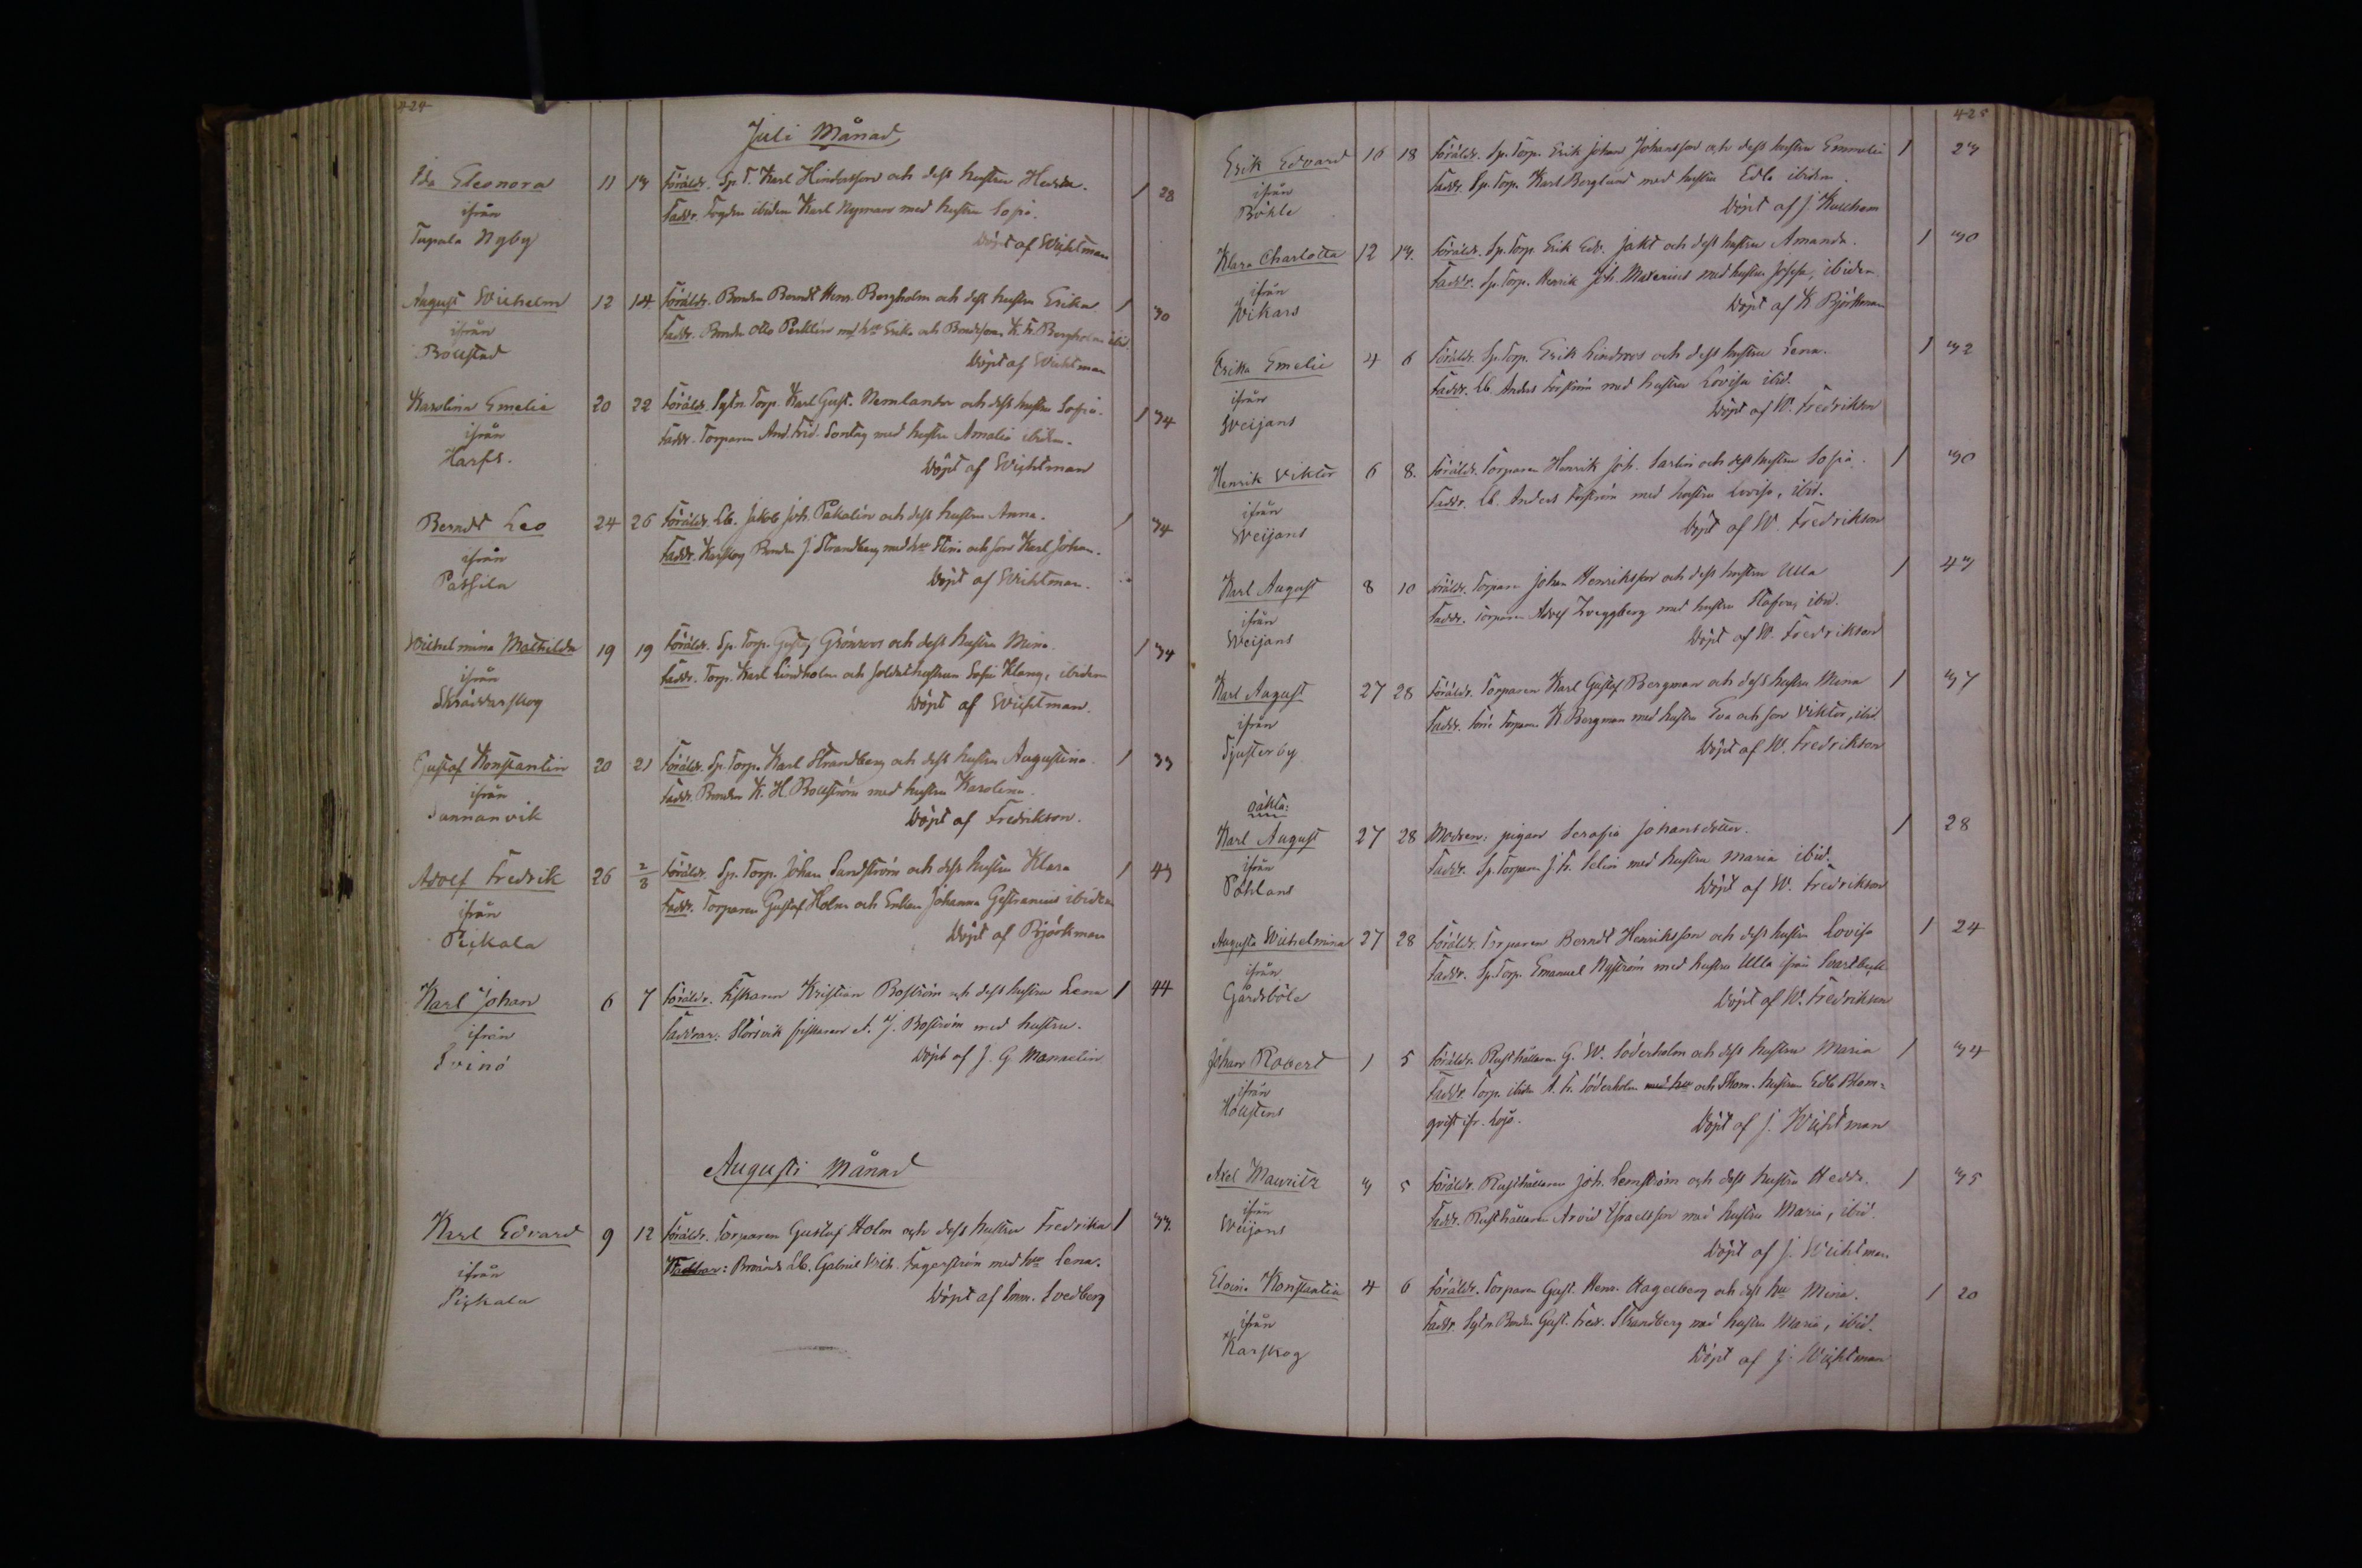 424
Juli Månad
Ida Eleonora 11 13 Föräldr. Sp. T. Karl Hindersson och dess hustru Hedda. 1 28
ifrån Faddr. Fogden ibidem Karl Nyman med hustru Sofia.
Tupala Nyby Döpt af Wichtman
August Wilhelm 12 14 Föräldr. Bonden Berndt Henr. Bergholm och dess hustru Erika 1 30
ifrån Faddr. Bonden Otto Perklén med hu Erika och Bondesonen K. F. Bergholm ibid.
Bollstad Döpt af Wichtman
Karolina Emelia 20 22 Föräldr. Sytn. Torp. Karl Gust. Nemlander och dess hustru Sofia. 1 34
ifrån Faddr. Torparen And. Frid. Sontag med hustru Amalia ibidem.
Harfs. Döpt af Wichtman
Berndt Leo 24 26 Föräldr. Lb. Jakob Joh. Pakalén och dess hustru Anna. 1 34
ifrån Faddr. Karskog Bonden J. Strandberg med hu Stina och son Karl Johan.
Passila Döpt af Wichtman.
Wilhelmina Mathilda 19 19 Föräldr. Sp. Torp. Gustaf Grönroos och dess hustru Mina. 1 34
ifrån Faddr. Torp. Karl Lindholm och soldathustrun Sofia Klang, ibidem
Skräddarskog Döpt af Wichtman.
Gustaf Konstantin 20 21 Föräldr. Sp. Torp. Karl Strandberg och dess hustru Augustina. 1 33
ifrån Faddr. Bonden K. H. Bollström med hustru Karolina.
Sannanvik Döpt af Fredrikson.
Adolf Fredrik 26 2/8 Föräldr. Sp. Torp. Johan Sandström och dess hustru Klara 1 43
ifrån Faddr. Torparen Gustaf Holm och Enkan Johanna Gestranius ibidem
Pickala Döpt af Björkman
Karl Johan 6 7 Föräldr. Fiskaren Kristian Boström och dess hustru Lena 1 44
ifrån Faddrar: Störsvik fiskaren A. J. Boström med hustru.
Svinö Döpt af J. G. Manselin
Augusti Månad
Karl Edvard 9 12 Föräldr. Torparen Gustaf Holm och dess hustru Fredrika 1 33
ifrån Faddrar: Lb. Gabriel Wilh. Fagerström med hu Lena.
Pickala Döpt af Imm. Svedberg
425
Erik Edvard 16 18 Föräldr. Sp. Torp. Erik Johan Johansson och dess hustru Emmelie 1 23
ifrån Faddr. Sp. Torp. Karl Berglund med hustru Edla ibidem.
Böhle Döpt af J. Kullhem
Klara Charlotta 12 13. Föräldr. Sp. Torp. Erik Edv. Jakt och dess hustru Amanda. 1 30
ifrån Faddr. Sp. Torp. Henrik Joh. Matenius med hustru Josefa, ibidem
Wikars Döpt af K Björkman
Erika Emelie 4 6 Föräldr. Sp. Torp. Erik Lindroos och dess hustru Lena. 1 32
ifrån Faddr. Lb. Anders Forström med hustru Lovisa ibid.
Weijans Döpt af W. Fredrikson
Henrik Viktor 6 8. Föräldr. Torparen Henrik Joh. Sarlin och dess hustru Sofia. 1 30
ifrån Faddr. Lb. Anders Forström med hustru Lovisa, ibid.
Weijans Döpt af W. Fredrikson
Karl August 8 10 Föräldr. Torparen Johan Henriksson och dess hustru Ulla 1 43
ifrån Faddr. Torparen Adolf Zveggberg med hustru Stafva, ibid.
Weijans Döpt af W. Fredrikson
Karl August 27 28 Föräldr. Torparen Karl Gustaf Bergman och dess hustru Mina 1 37
ifrån Faddr. Torparen K Bergman med hustru Eva och son Viktor, ibid.
Tjusterby Döpt af W. Fredrikson
oäkta:
Karl August 27 28 Modren: pigan Serafia Johansdotter. 1 28
ifrån Faddr. Sp. Torparen J. F. Selin med hustru Maria ibid.
Påhlans Döpt af W. Fredrikson
Augusta Wilhelmina 27 28 Föräldr. Torparen Berndt Henriksson och dess hustru Lovisa 1 24
ifrån Faddr. Sp. Torp. Emanuel Nyström med hustru Ulla ifrån Svartbäck
Gårdsböle Döpt af W. Fredrikson
Johan Robert 1 5 Föräldr. Rusthållaren G. W. Söderholm och dess hustru Maria 1 34
ifrån Faddr. Torp. ibidem A. F. Söderholm med hu och Skom. hustrun Edla Blom=
Hollstens qvist ifr. Lojo. Döpt af J. Wichtman
Axel Mauritz 3 5 Föräldr. Rusthållaren Joh. Lemström och dess hustru Hedda. 1 35
ifrån Faddr. Rusthållaren Arvid Israelsson med hustru Maria, ibid.
Weijans Döpt af J. Wichtman.
Elvina Konstantia 4 6 Föräldr. Torparen Gust. Henr. Hagelberg och dess hu Mina. 1 20
ifrån Faddr. Sytn. Bonden Gust. Fredr. Strandberg med hustru Maria, ibid.
Karskog Döpt af J. Wichtman